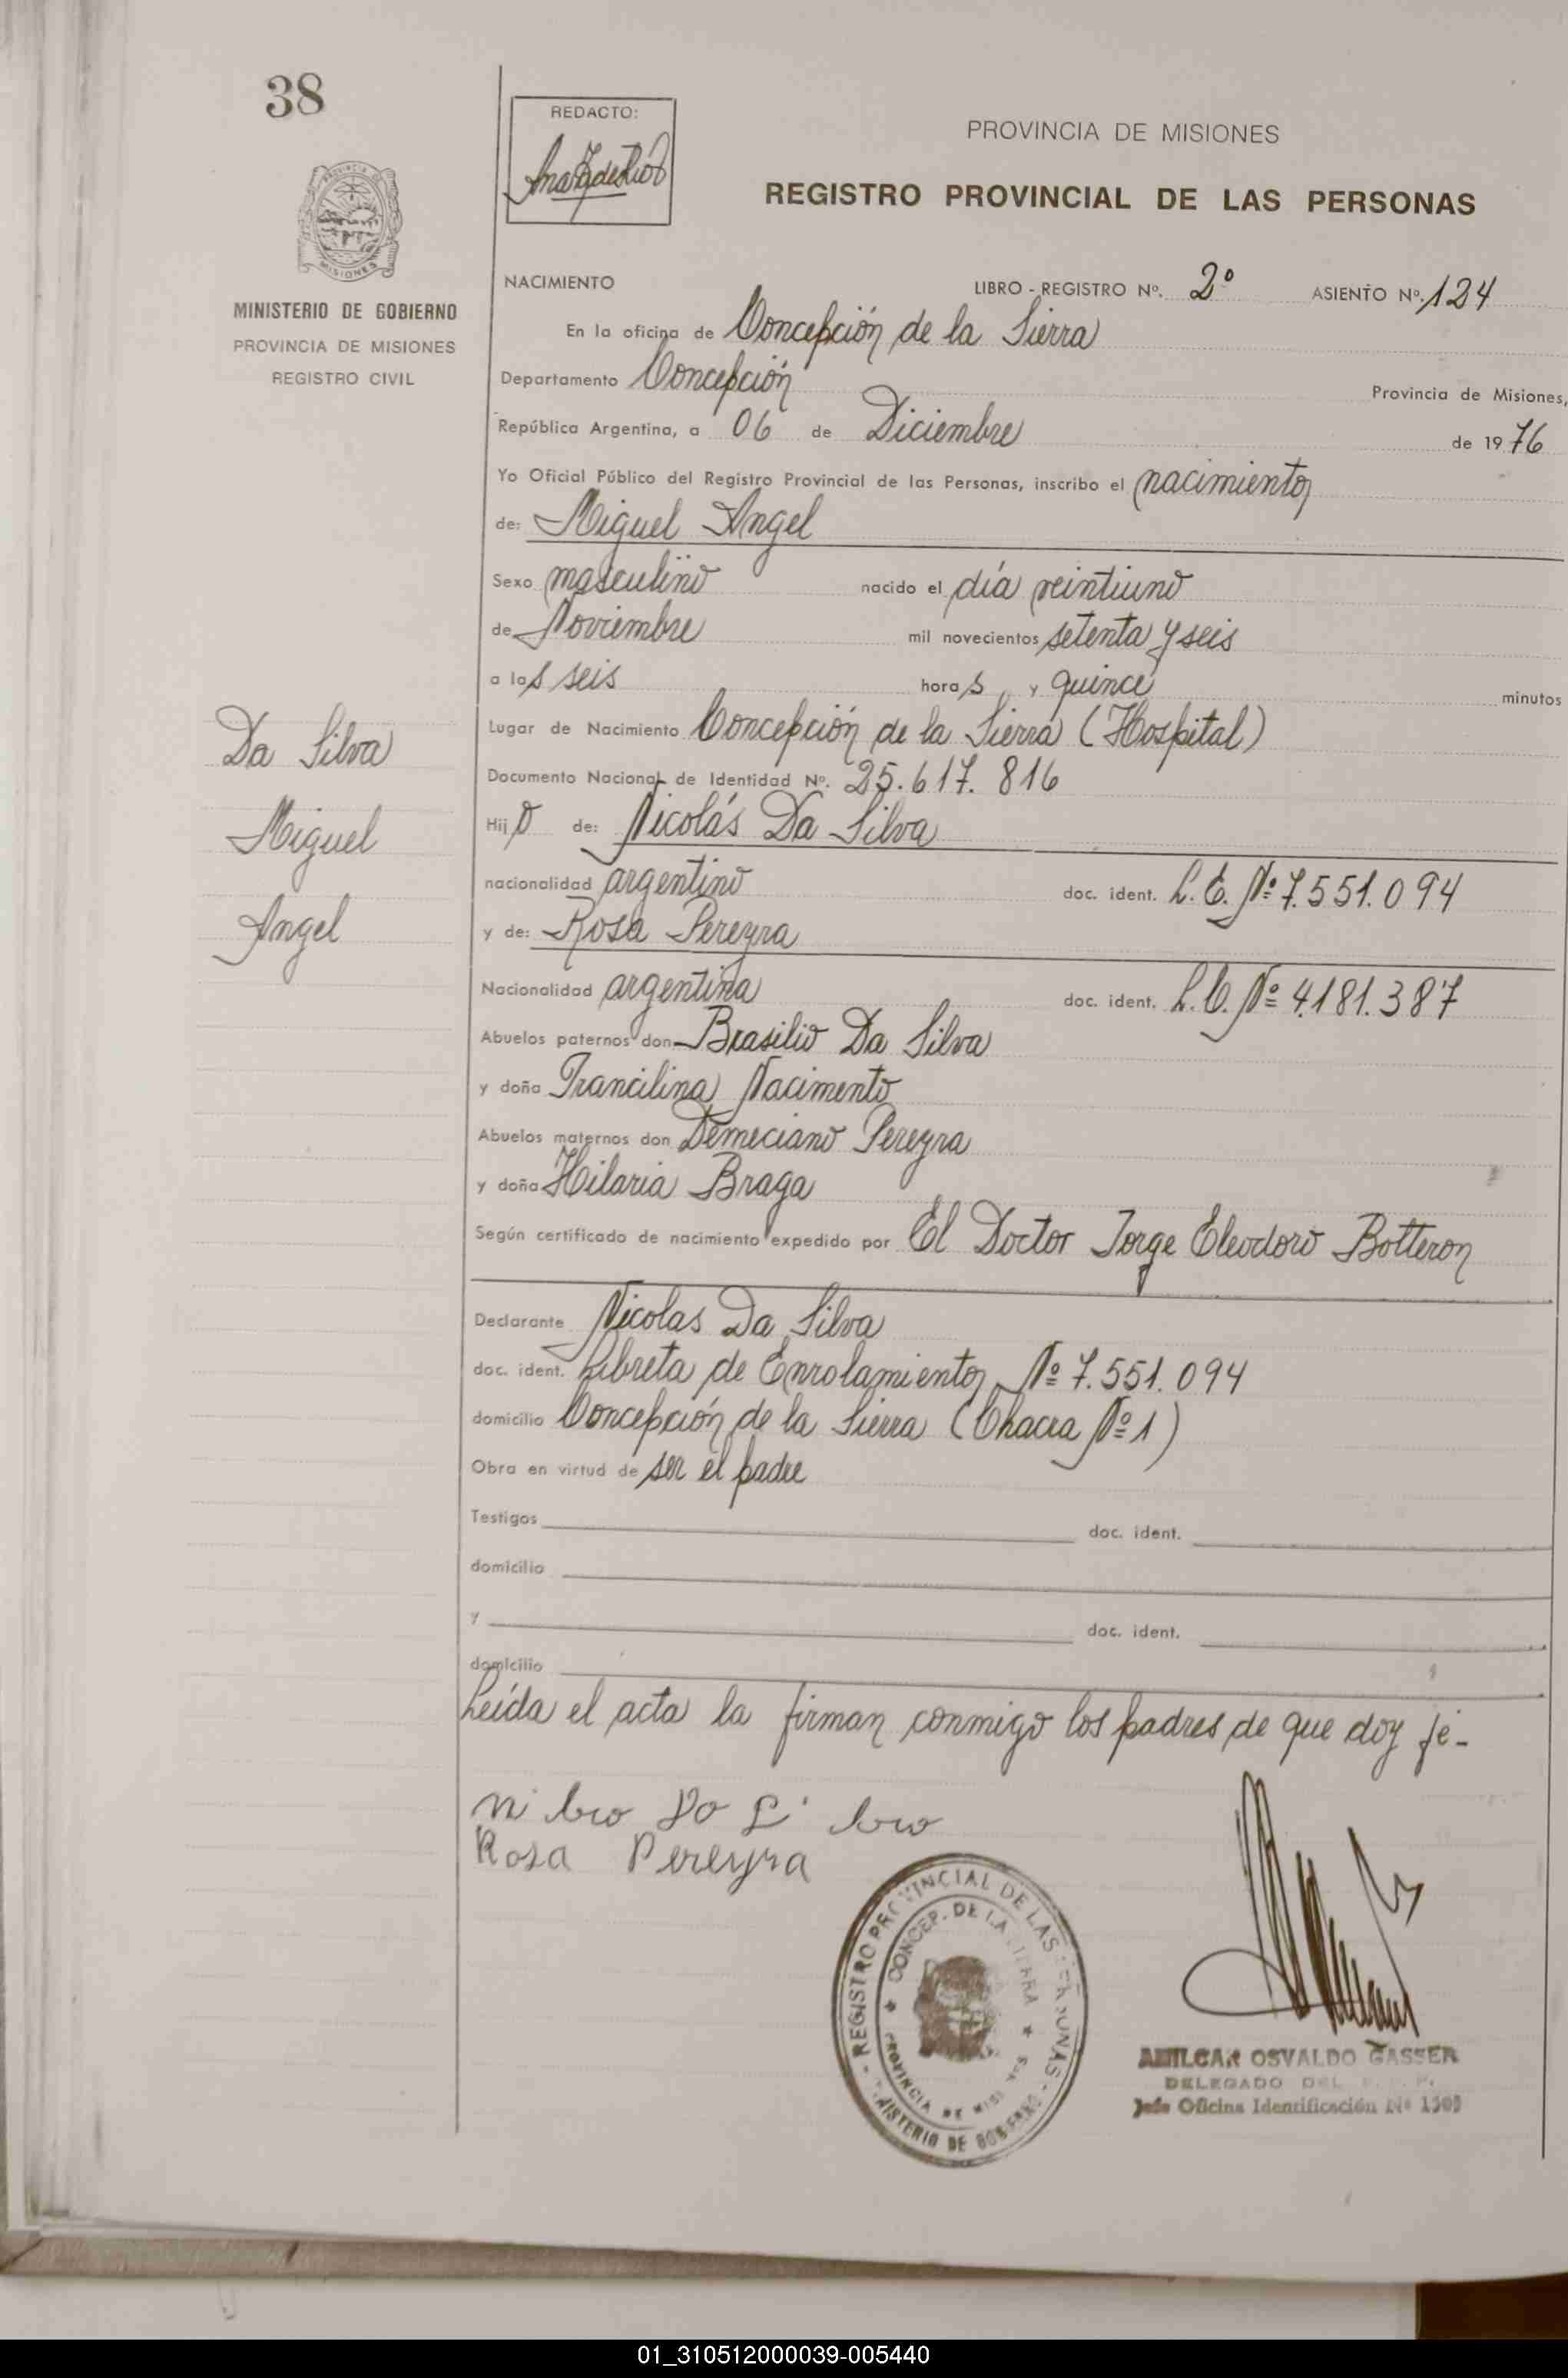 38
REDACTO:
PROVINCIA DE MISIONES
REGISTRO PROVINCIAL DE LAS PERSONAS
MISIONES
MINISTERIO DE GOBIERNO
PROVINCIA DE MISIONES
REGISTRO CIVIL
NACIMIENTO LIBRO - REGISTRO Nº. 2º ASIENTO Nº. 124
En la oficina de Concepción de la Sierra
Departamento Concepción Provincia de Misiones,
República Argentina, a 06 de Diciembre de 1976
Yo Oficial Público del Registro Provincial de las Personas, inscribo el nacimiento
de: Miguel Angel
Sexo masculino nacido el día veintiuno
de Noviembre mil novecientos setenta y seis
a las seis horas y quince minutos
Lugar de Nacimiento Concepción de la Sierra (Hospital)
Documento Nacional de Identidad Nº. 25.617.816
Hijo de: Nicolás Da Silva
nacionalidad argentino doc. ident. L.E. Nº 7.551.094
y de: Rosa Pereyra
Nacionalidad argentina doc. ident. L.C. Nº 4.181.387
Abuelos paternos don Brasilio Da Silva
y doña Francilina Nacimento
Abuelos maternos don Demeciano Pereyra
y doña Hilaria Braga
Según certificado de nacimiento expedido por El Doctor Jorge Eleodoro Botteron
Declarante Nicolas Da Silva
doc. ident. Libreta de Enrolamiento Nº 7.551.094
domicilio Concepción de la Sierra (Chacra Nº 1)
Obra en virtud de ser el padre
Testigos doc. ident.
domicilio
y doc. ident.
domicilio
Leída el acta la firman conmigo los padres de que doy fé-
Rosa Pereyra
Da Silva
Miguel
Angel
- REGISTRO PROVINCIAL DE LAS PERSONAS -
MINISTERIO DE GOBIERNO
CONCEP. DE LA SIERRA
PROVINCIA DE MISIONES
AMILCAR OSVALDO GASSER
DELEGADO DEL
Jefe Oficina Identificación Nº
01_310512000039-005440